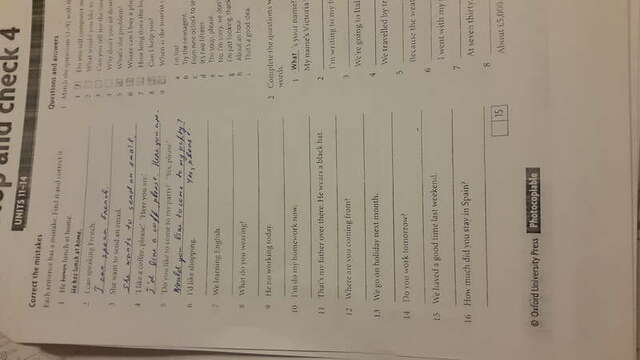 op and check 4
UNITS 11–14
Correct the mistakes
Each sentence has a mistake. Find it and correct it.
1 He haves lunch at home.
He has lunch at home.
2 I can speaking French.
I can speak French
3 She want to send an email.
She wants to send an email.
4 'I like a coffee, please.' 'Here you are.'
I'd like a coffee, please. Here you are.
5 'Do you like to come to my party?' 'Yes, please.'
Would you like to come to my party?
Yes, please
6 I'd like shopping.
7 We learning English.
8 What do you wearing?
9 He no working today.
10 I'm do my homework now.
11 That's my father over there. He wears a black hat.
12 Where you are coming from?
13 We go on holiday next month.
14 Do you work tomorrow?
15 We haved a good time last weekend.
16 How much did you stay in Spain?
15
Questions and answers
1 Match the questions
1 Do you still
2 What would you like
3 Can you tell me the
4 Why don't you
5 What's the problem?
6 Where can I buy a
7 How long does the
8 Can I help you?
9 When is the tourist
a I'm hot
b Try the newsagent,
c From nine o'clock to
d It's two fifteen
e No, I'm sorry, we don't
g I'm just looking, thank
h About an hour.
i That's a good idea.
2 Complete the questions
words.
1 What 's your name?
My name's Victoria
2
I'm writing to my
3
We're going to
4
We travelled by
5
Because the
6
I went with my
7
At seven thirty.
8
About £5,000.
© Oxford University Press Photocopiable